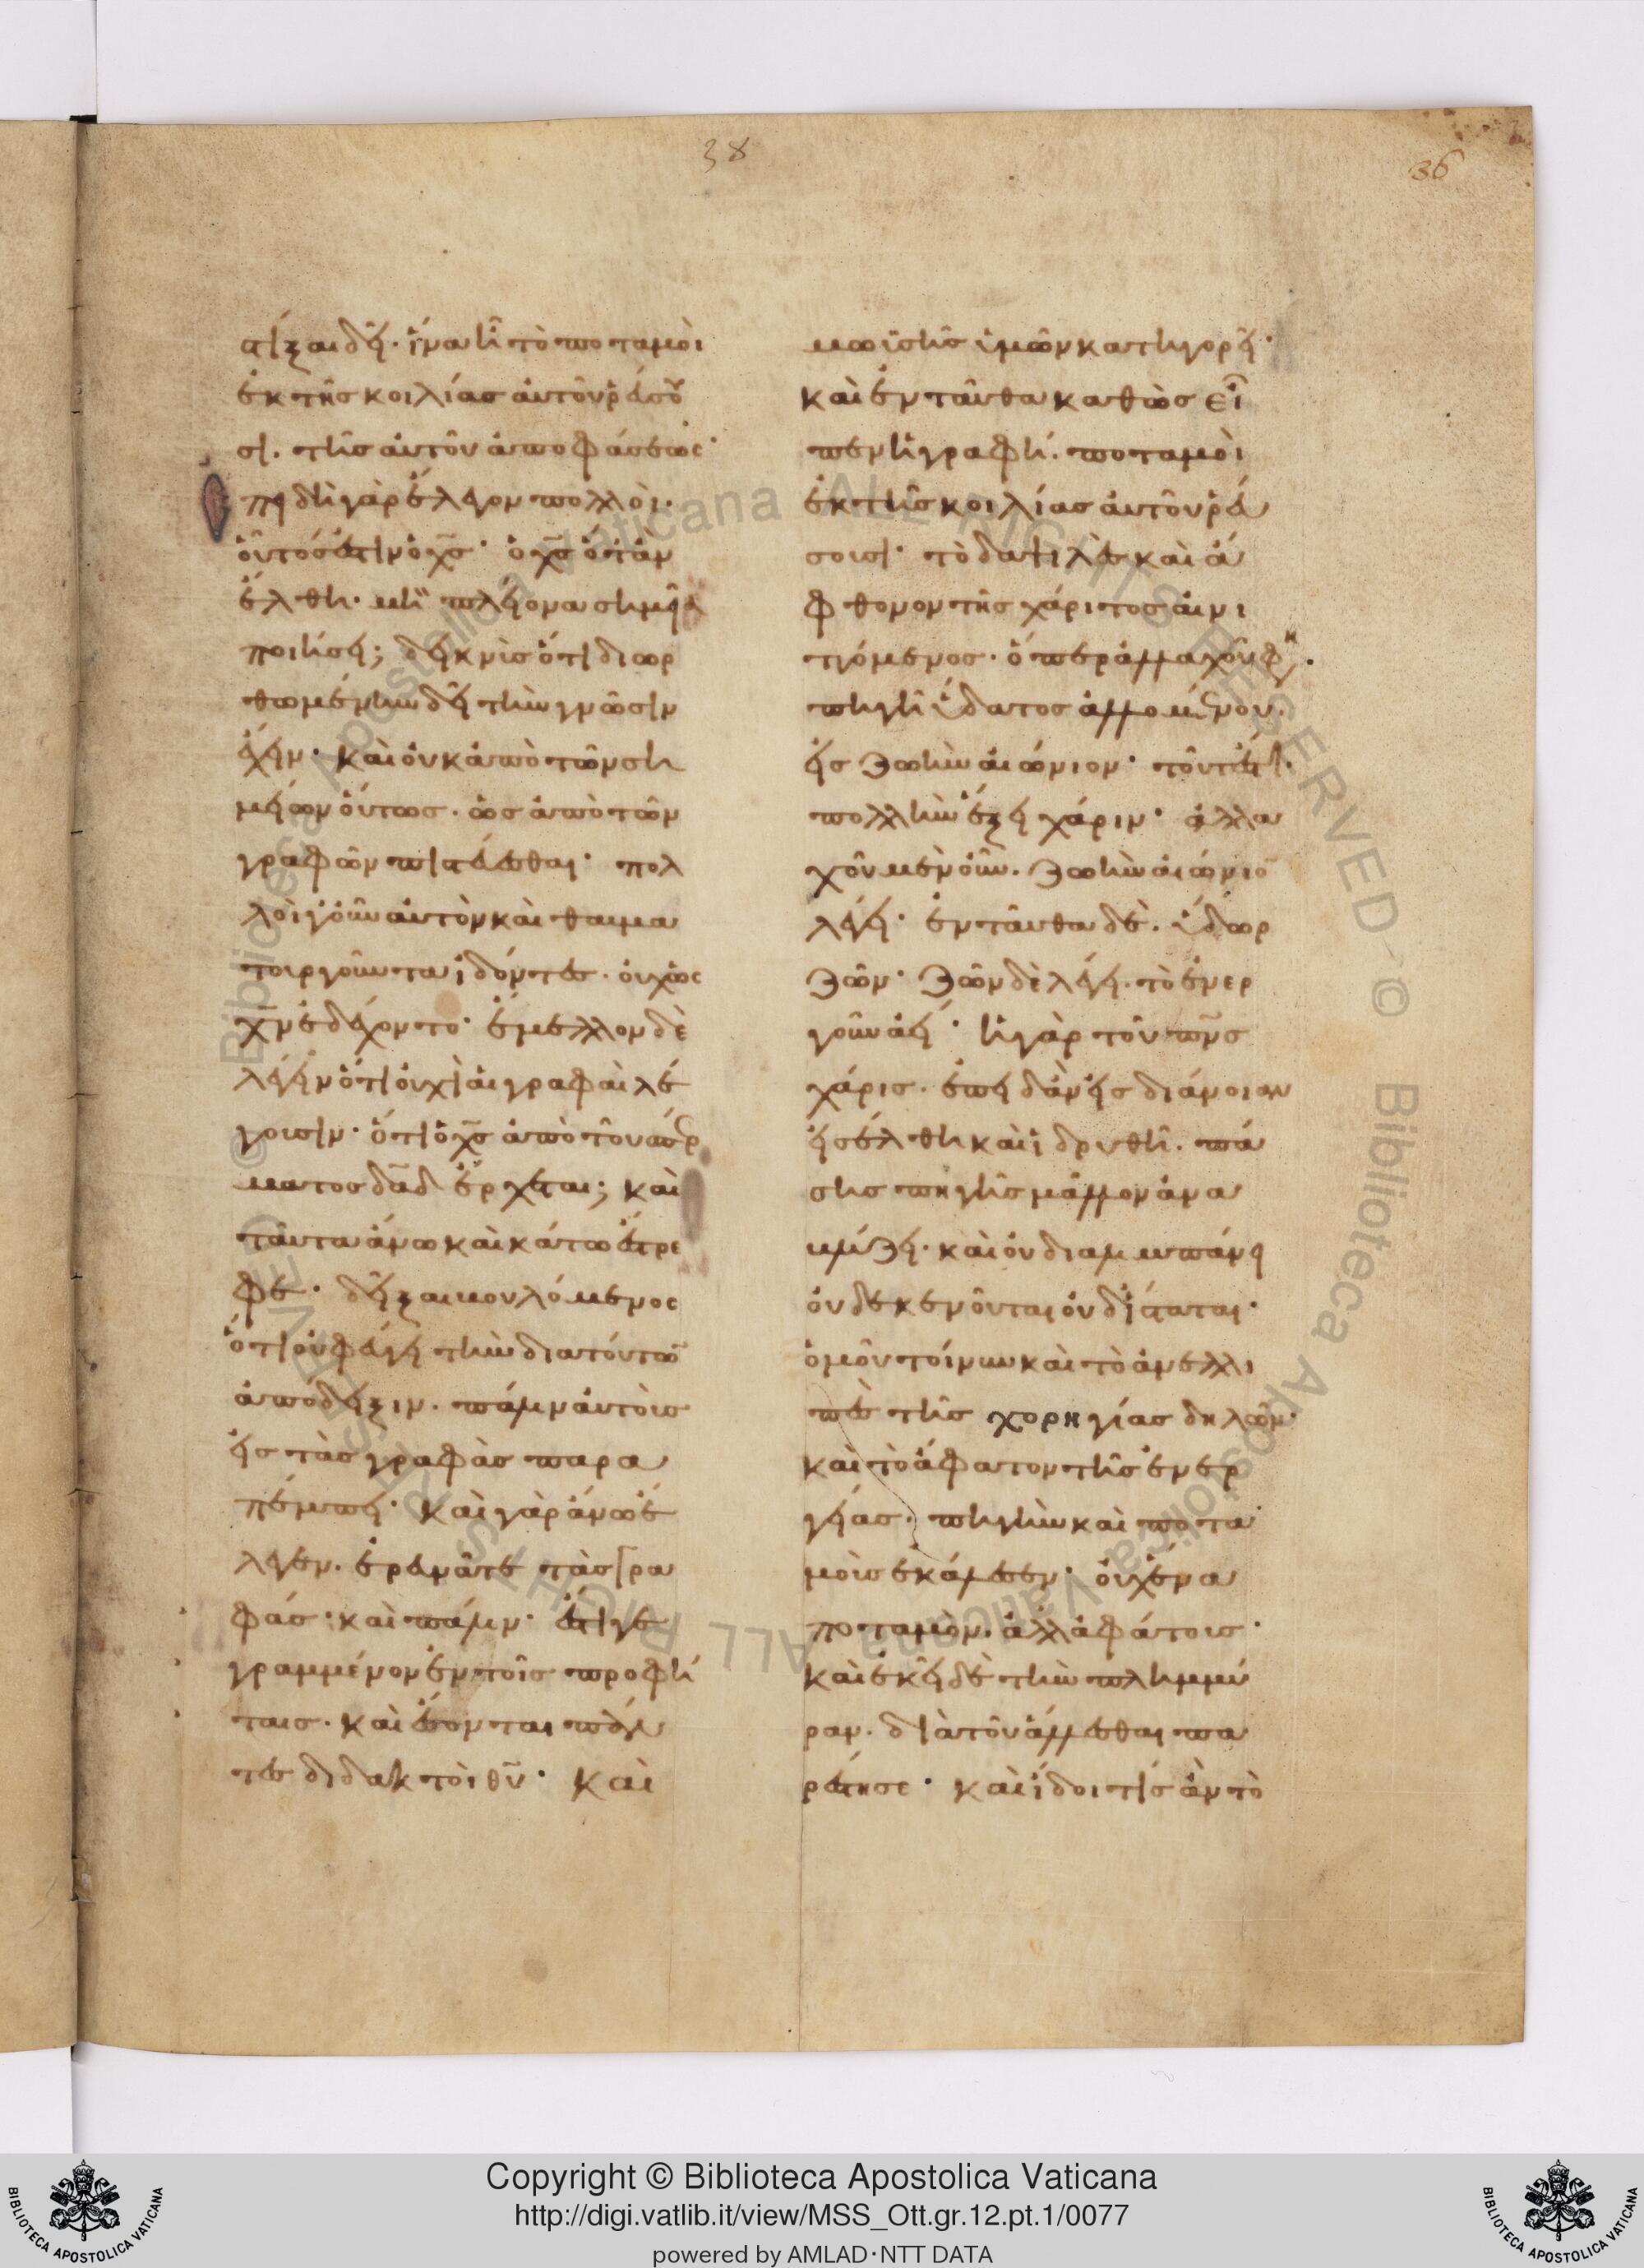 38
36
στίξαι δεῖ· ἵνα ἦ τὸ ποταμοὶ
ἐκ τῆς κοιλίας αὐτοῦ ῥεύσου
σι. τῆς αὐτοῦ ἀποφάσεως·
πειδὴ γὰρ ἔλεγον πολλοὶ.
οὗτός ἐστιν ὁ χς· ὁ χς ὅταν
ἔλθη· μὴ πλείονα σημεῖα
ποιήσει; δείκνυσ ὅτι διωρ
θωμένην δεῖ τὴν γνῶσιν
ἔχειν· καὶ οὐκ ἀπὸ τῶν ση
μείων οὕτως. ὡς ἀπὸ τῶν
γραφῶν πιστεύεσθαι· πολ
λοὶ γοῦν αὐτὸν καὶ θαυμα
τουργοῦντα ἰδόντες. οὐχ ὡς
χν ἐδέχοντο· ἔμελλον δὲ
λέγειν ὅτι οὐχὶ αἱ γραφαὶ λέ
γουσιν· ὅτι ὁ χς ἀπὸ τοῦ σπέρ
ματος δαδ ἔρχεται; καὶ
ταῦτα ἄνω καὶ κάτω ἔστρε
φε· δεῖξαι βουλόμενος
ὅτι οὐ φεύγει τὴν διὰ τούτων
ἀπόδειξιν. πάλιν αὐτοὺς
εἰς τὰς γραφὰς παρα
πέμπει· καὶ γὰρ ἄνω ἔ
λεγεν. ἐρευνᾶτε τὰς γρα
φάς· καὶ πάλιν· ἔστι γε
γραμμένον ἐν τοῖς προφή
ταις. καὶ ἔσονται πάν
τες διδακτοὶ θυ· καὶ
μωϋσῆς ὑμῶν κατηγορεῖ·
καὶ ἐνταῦθα καθὼς εἶ
πεν ἡ γραφή. ποταμοὶ
ἐκ τῆς κοιλίας αὐτοῦ ῥεύ
σουσι· τὸ δαψιλὲς καὶ ἄ
φθονον τῆς χάριτος αἰνι
τόμενος. ὅπερ ἀλλαχοῦ φη.
πηγὴ ὕδατος ἁλλομένου.
εἰς ζωὴν αἰώνιον· τουτέστι.
πολλὴν ἕξει χάριν· ἀλλα
χοῦ μὲν οὖν. ζωὴν αἰώνιον
λέγει· ἐνταῦθα δὲ. ὕδωρ
ζῶν· ζῶν δὲ λέγει. τὸ ἐνερ
γοῦν ἀεί· ἡ γὰρ τοῦ πνς
χάρις. ἐπειδὰν εἰς διάνοιαν
εἰσέλθη καὶ ἱδρυθῆ. πά
σης πηγῆς μᾶλλον ἀνα
βλύζει. καὶ οὐ διαλιμπάνει
οὐδὲ κενοῦται οὐδ' ἵσταται·
ὁμοῦ τοίνυν καὶ τὸ ἀνελλι
πὲς τῆς χορηγίας δηλῶν·
καὶ τὸ ἄφατον τῆς ἐνερ
γείας. πηγὴν καὶ ποτα
μοὺς ἐκάλεσεν· οὐχ ἕνα
ποταμὸν. ἀλλ' ἀφάτους·
καὶ ἐκεῖ δὲ τὴν πλημμύ
ραν. διὰ τοῦ ἅλλεσθαι πα
ρέστησε· καὶ ἴδοι τίς ἂν τὸ
Copyright © Biblioteca Apostolica Vaticana
http://digi.vatlib.it/view/MSS_Ott.gr.12.pt.1/0077
powered by AMLAD·NTT DATA